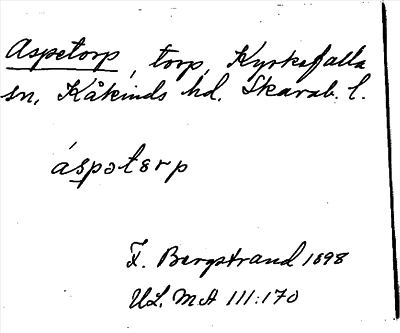 Aspetorp, torp, Kyrkefalla
sn, Kåkinds hd. Skarab. l.
áspətərp
F. Bergstrand 1898
ULMA 111:170